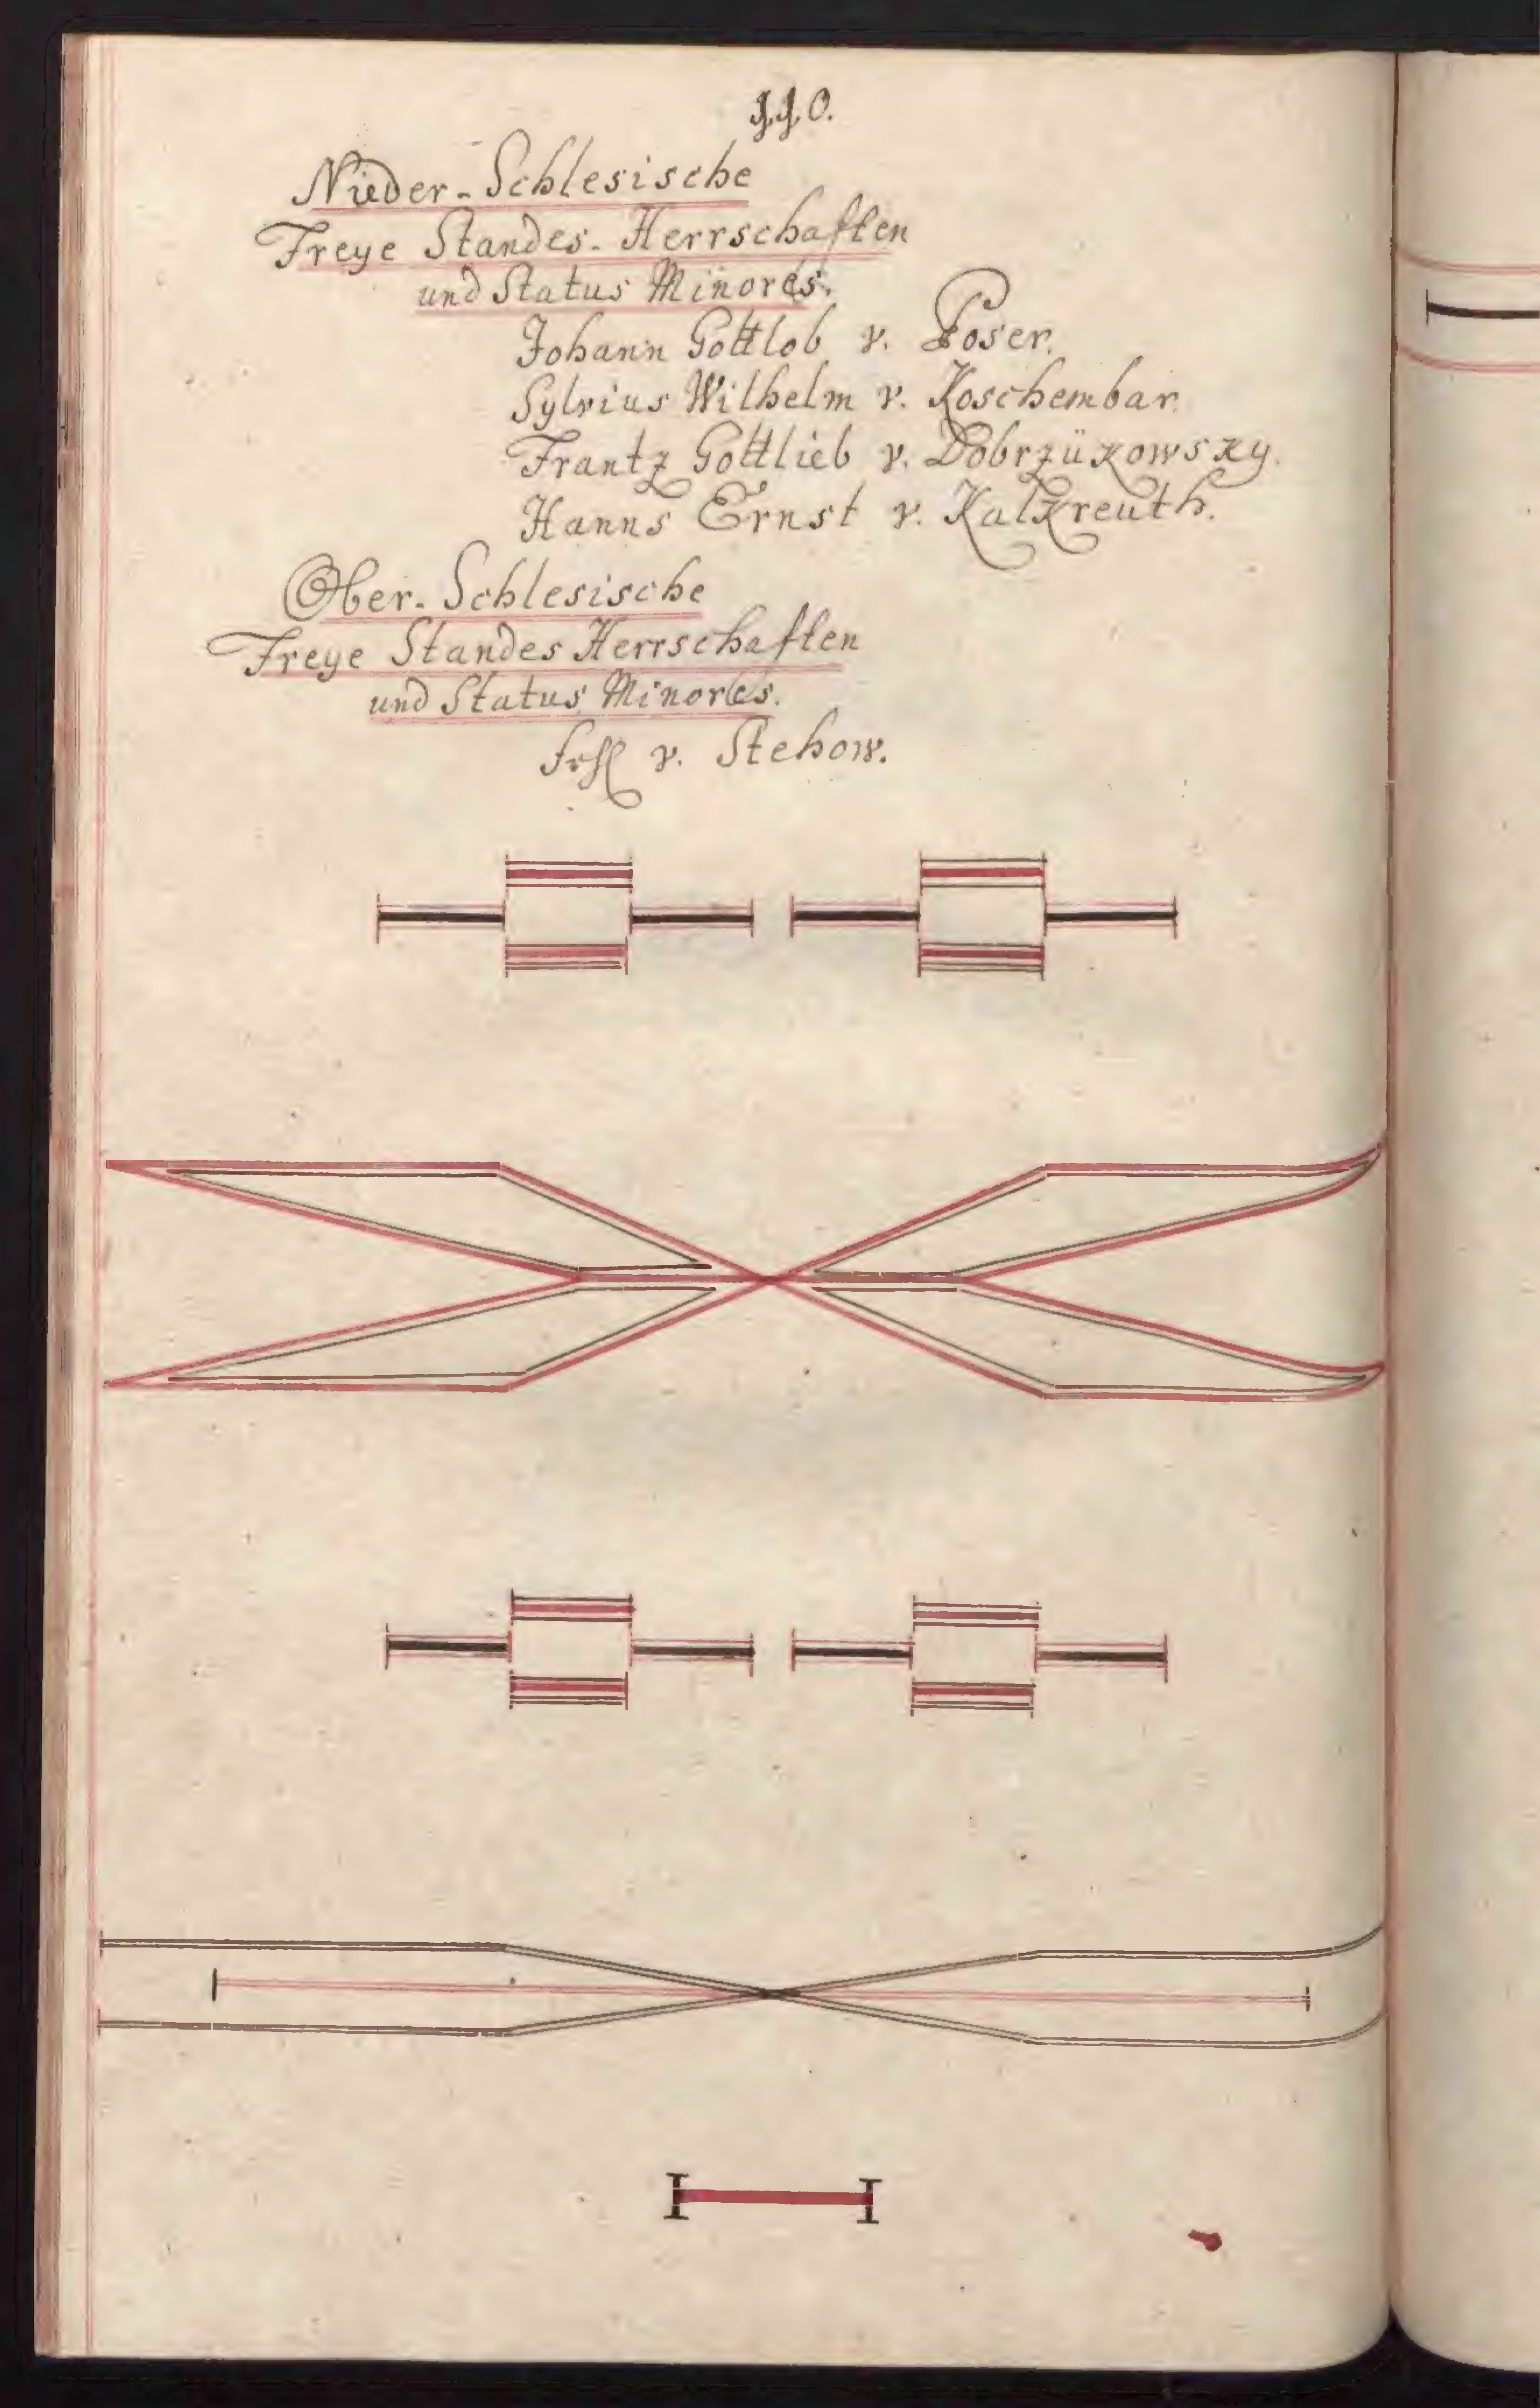 110.
Nieder-Schlesische
Freye Standes-Herrschafften
und Status Minores.
Johann Gottlob v. Poser.
Sylvius Wilhelm v. Koschembar.
Frantz Gottlieb v. Dobrzükowsky.
Hanns Ernst v. Kalkreuth.
Ober-Schlesische
Freye Standes Herrschafften
und Status Minores.
v. Stehow.